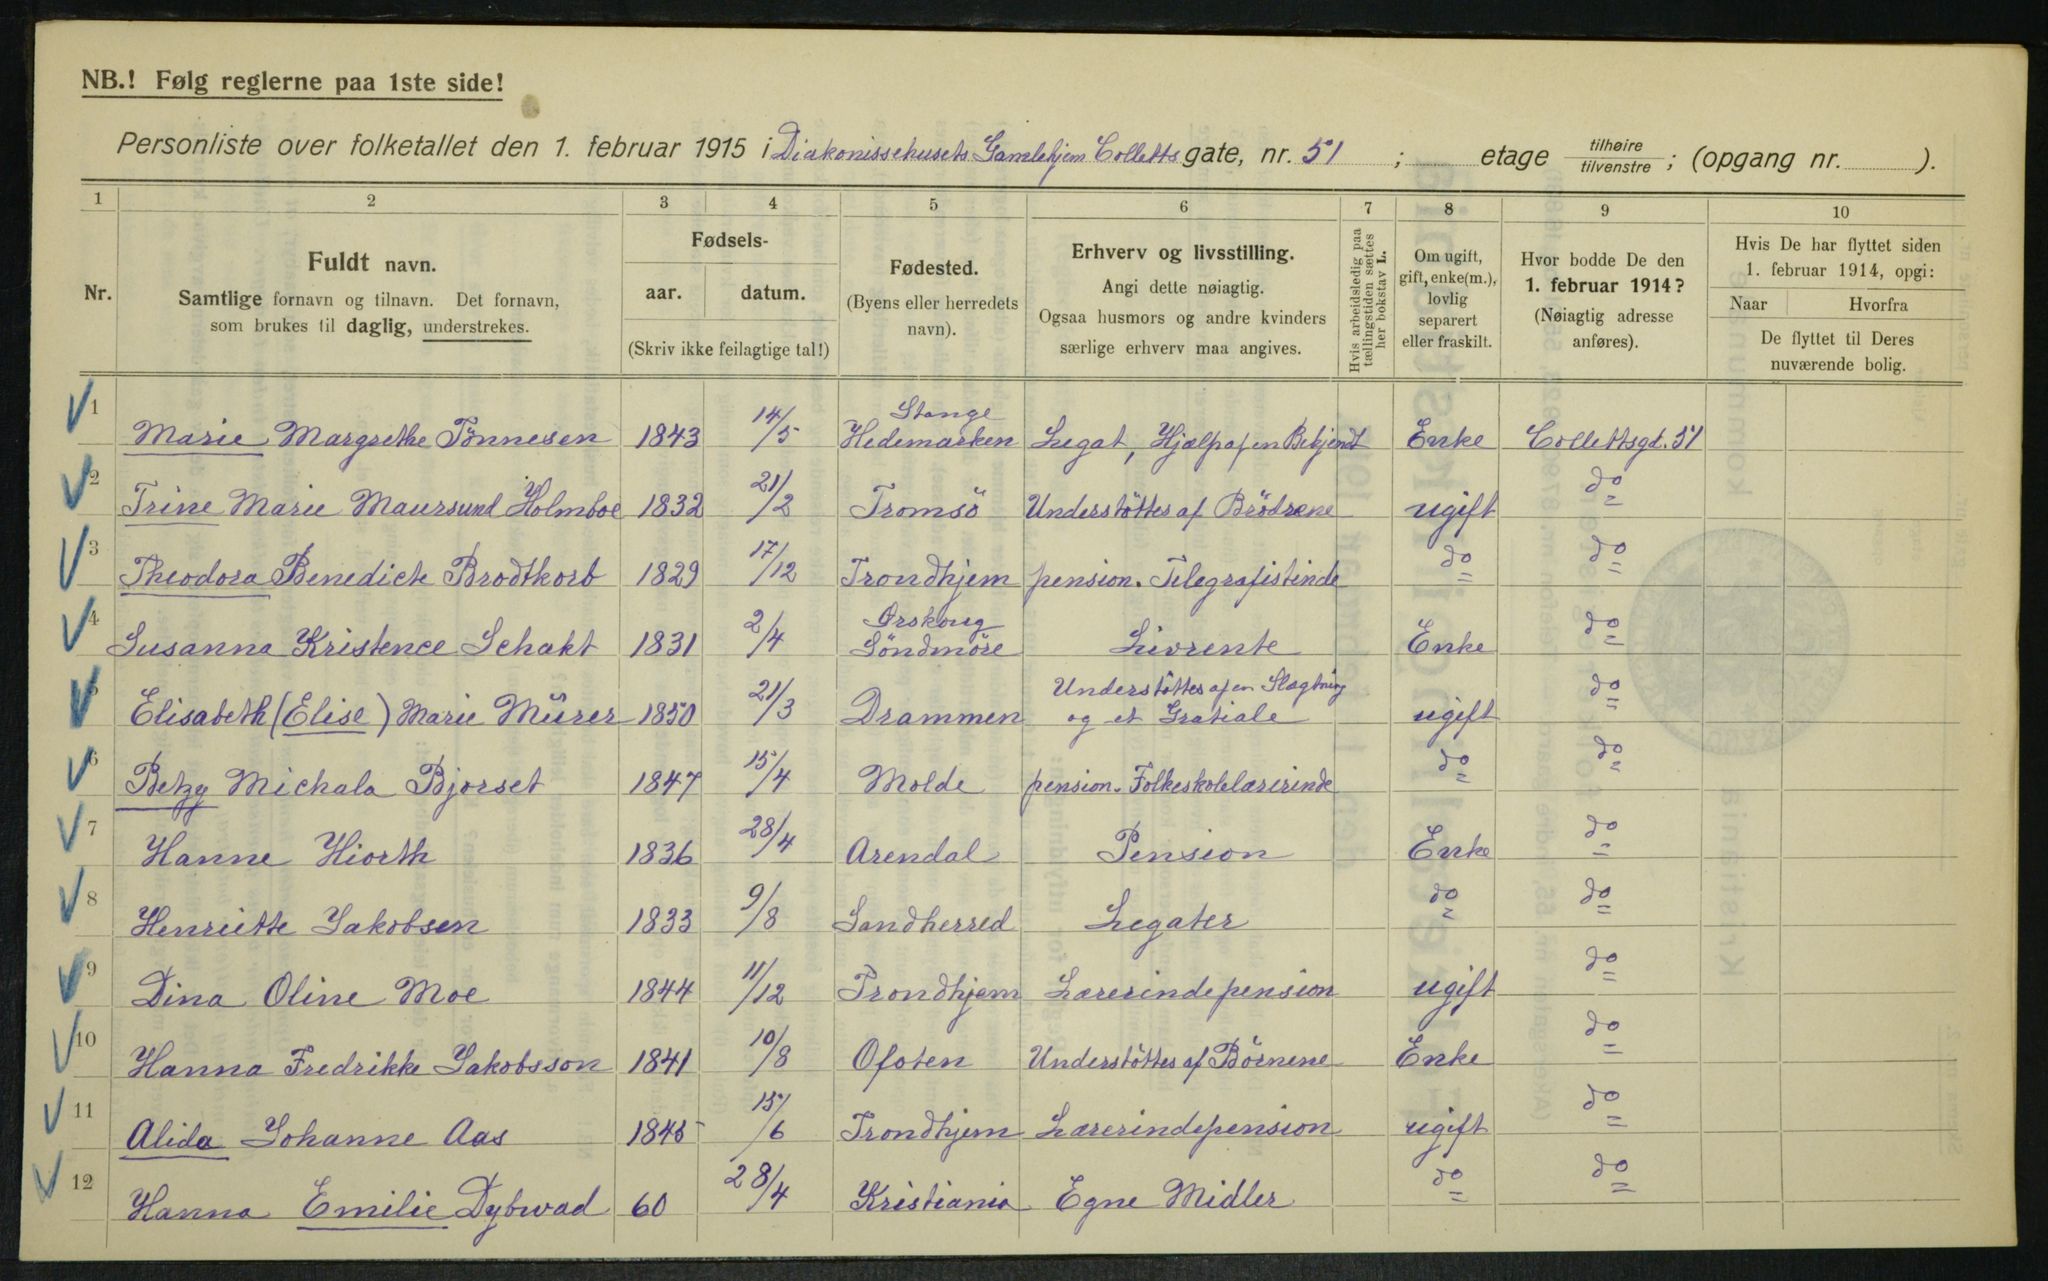 NB.! Følg reglerne paa 1ste side!
Personliste over folketallet den 1. februar 1915 i Diakonissehusets Gamlehjem Colletts gate, nr. 51 ; etage tilhøire / tilvenstre ; (opgang nr. ).
1 2 3 4 5 6 7 8 9 10
Nr.
Fuldt navn.
Samtlige fornavn og tilnavn. Det fornavn,
som brukes til daglig, understrekes.
Fødsels-
aar. datum.
(Skriv ikke feilagtige tal!)
Fødested.
(Byens eller herredets
navn).
Erhverv og livsstilling.
Angi dette nøiagtig.
Ogsaa husmors og andre kvinders
særlige erhverv maa angives.
Hvis arbeidsledig paa
tællingstiden sættes
her bokstav L.
Om ugift,
gift, enke(m.),
lovlig
separert
eller fraskilt.
Hvor bodde De den
1. februar 1914?
(Nøiagtig adresse
anføres).
Hvis De har flyttet siden
1. februar 1914, opgi:
Naar Hvorfra
De flyttet til Deres
nuværende bolig.
1 Marie Margrethe Tönnesen 1843 14/5 Stange Hedemarken Legat, Hjælp af en Bekjendt Enke Collettsgt. 51
2 Trine Marie Maursund Holmboe 1832 21/2 Tromsö Understöttes af Brödrene ugift do
3 Theodora Benedicte Brodtkorb 1829 17/12 Trondhjem pension. Telegrafistinde do do
4 Susanna Kristence Schakt 1831 2/4 Ørskoug Söndmöre Livrente Enke do
5 Elisabeth (Elise) Marie Mürer 1850 21/3 Drammen Understöttes af en Slægtning og et Gratiale ugift do
6 Betzy Michala Bjorset 1847 15/4 Molde pension. Folkeskolelærerinde do do
7 Hanne Hiorth 1836 28/4 Arendal Pension Enke do
8 Henriette Jakobsen 1833 9/8 Sandherred Legater do do
9 Dina Oline Moe 1844 11/12 Trondhjem Lærerindepension ugift do
10 Hanna Fredrikke Jakobsson 1841 10/8 Ofoten Understöttes af Börnene Enke do
11 Alida Johanne Aas 1845 15/6 Trondhjem Lærerindepension ugift do
12 Hanna Emilie Dybwad 60 28/4 Kristiania Egne Midler do do